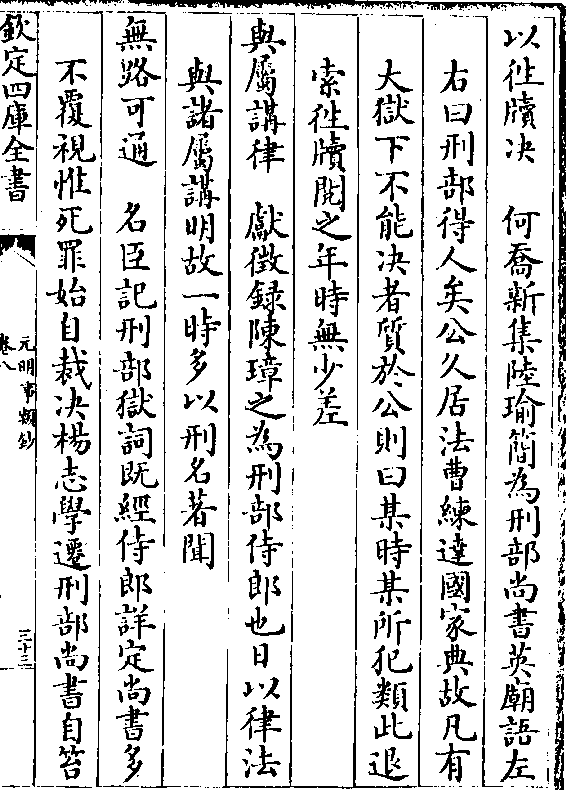 以徃牘决　何喬新集陸瑜簡為刑部尚書英廟語左
右曰刑部得人矣公久居法曹練達國家典故凡有
大獄下不能决者質於公則曰某時某所犯類此退
索徃牘閲之年時無少差
與屬講律　獻徴録陳璋之為刑部侍郎也日以律法
與諸屬講明故一時多以刑名著聞
無路可通　名臣記刑部獄詞既經侍郎詳定尚書多
不覆視惟死罪始自裁决楊志學遷刑部尚書自笞
欽定四庫全書
元明事類鈔
卷八
三十三